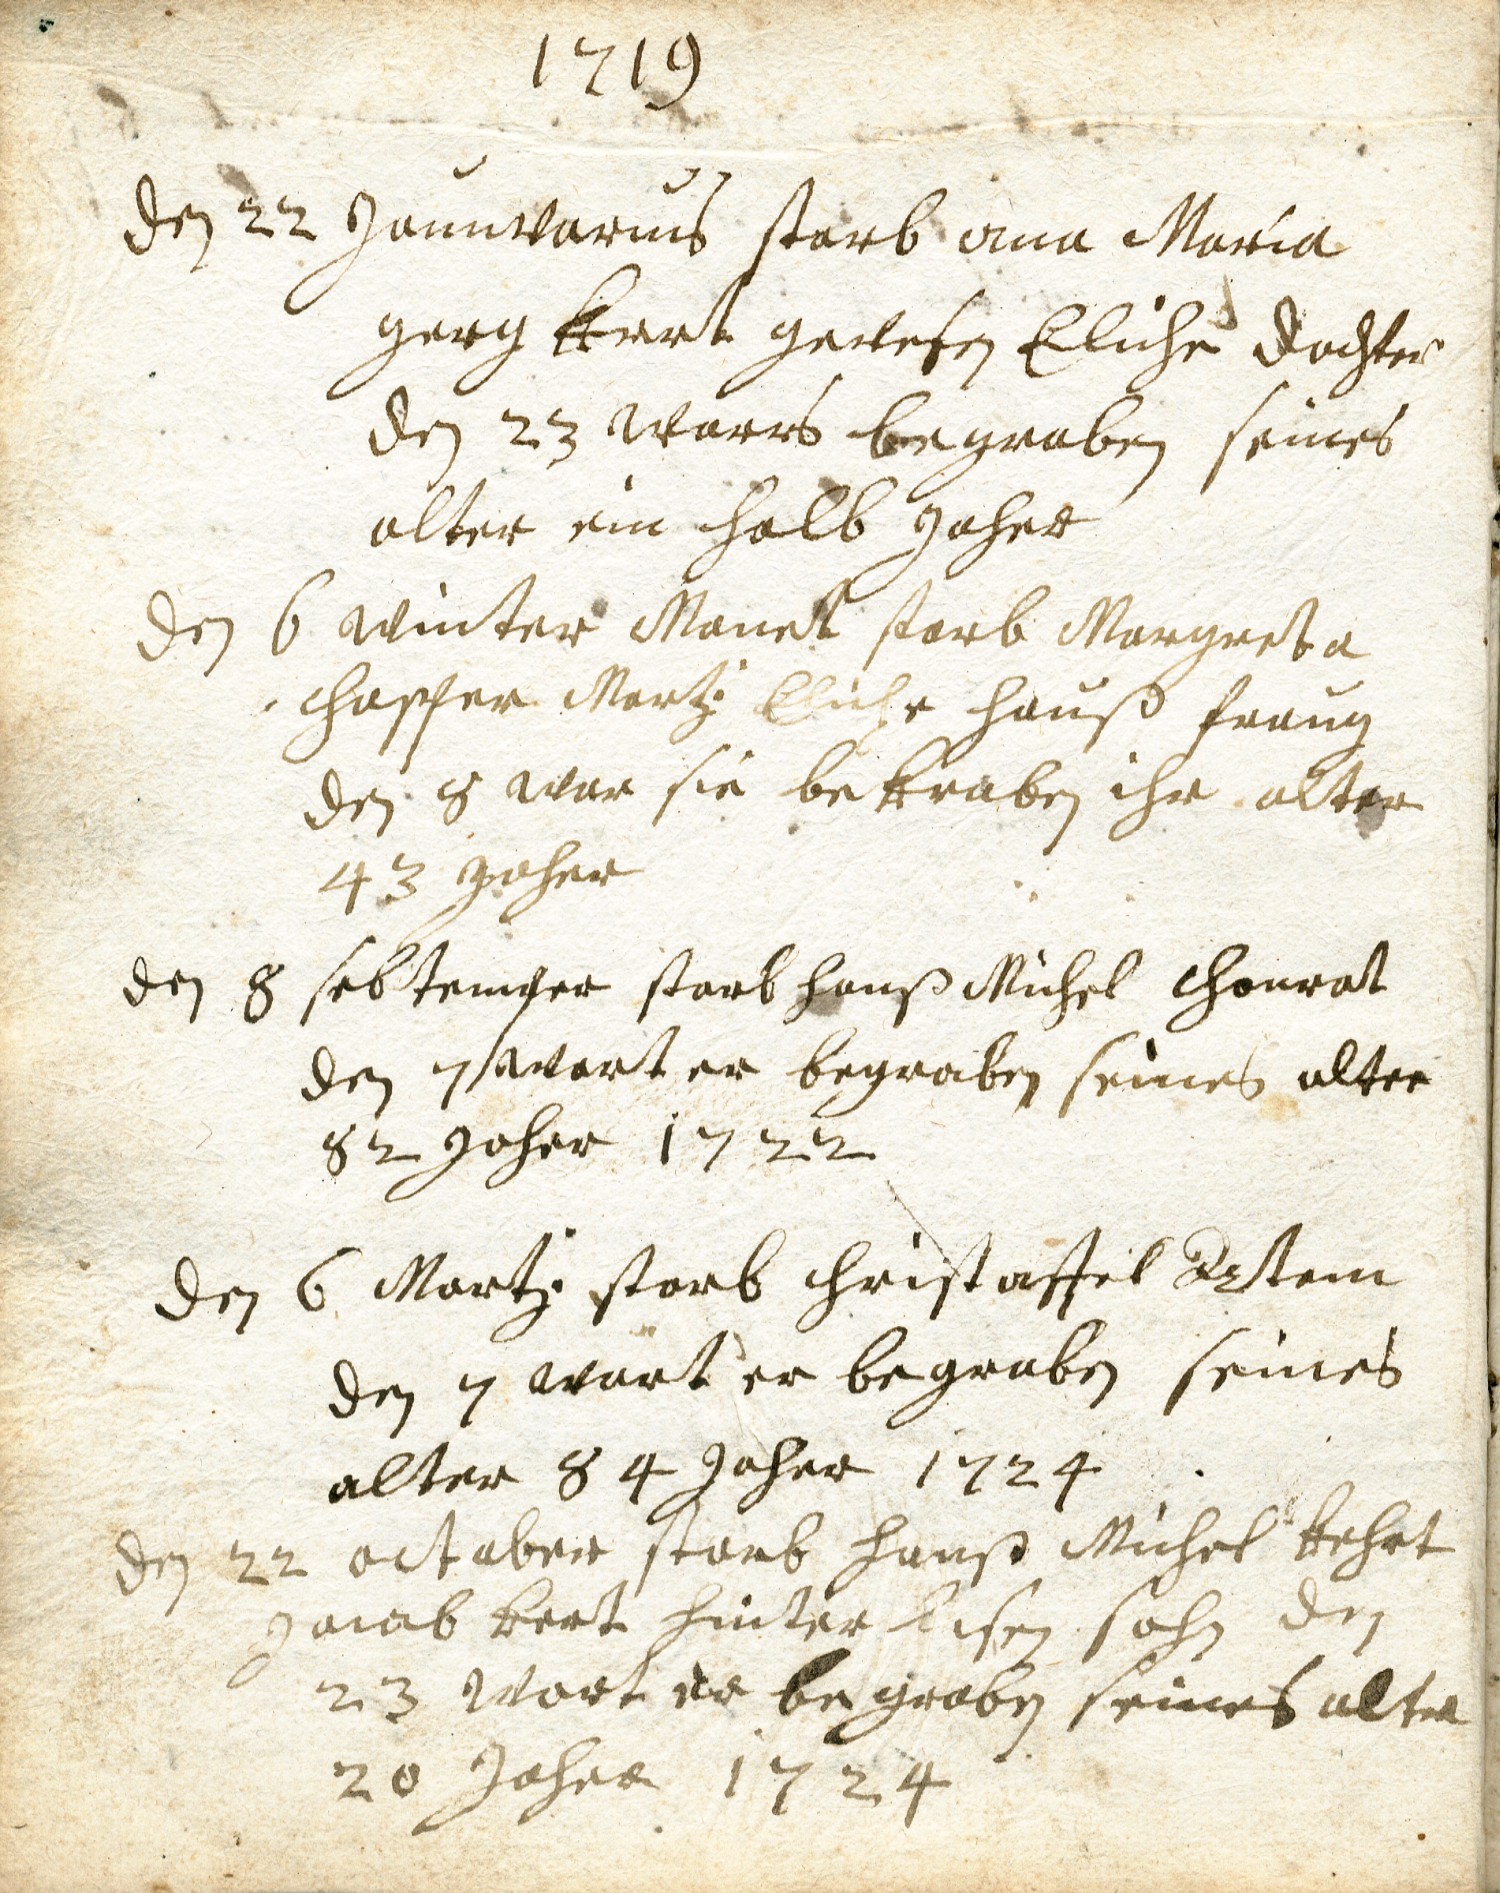 1719
den 22 Jannwarius starb ana Maria
gerg kert gewesen Eliche dochter
den 23 warrs begraben seines
alter ein halb Jaher
den 6 winter Manet starb Margreta
chasper Martzi Eliche hauß fraug
den 8 war sie bekraben ihr alter
43 Jaher
den 8 sebtemper starb hanß Michel Chonrat
den 7 wart er begraben seines alter
82 Jaher 1722
den 6 Martzi starb christaffel
den 7 wart er begraben seines
alter 84 Jaher 1724
den 22 octaber starb hanß Michel kehrt
Jacab kert hinter sohn den
23 wart er begraben seines alter
20 Jaher 1724